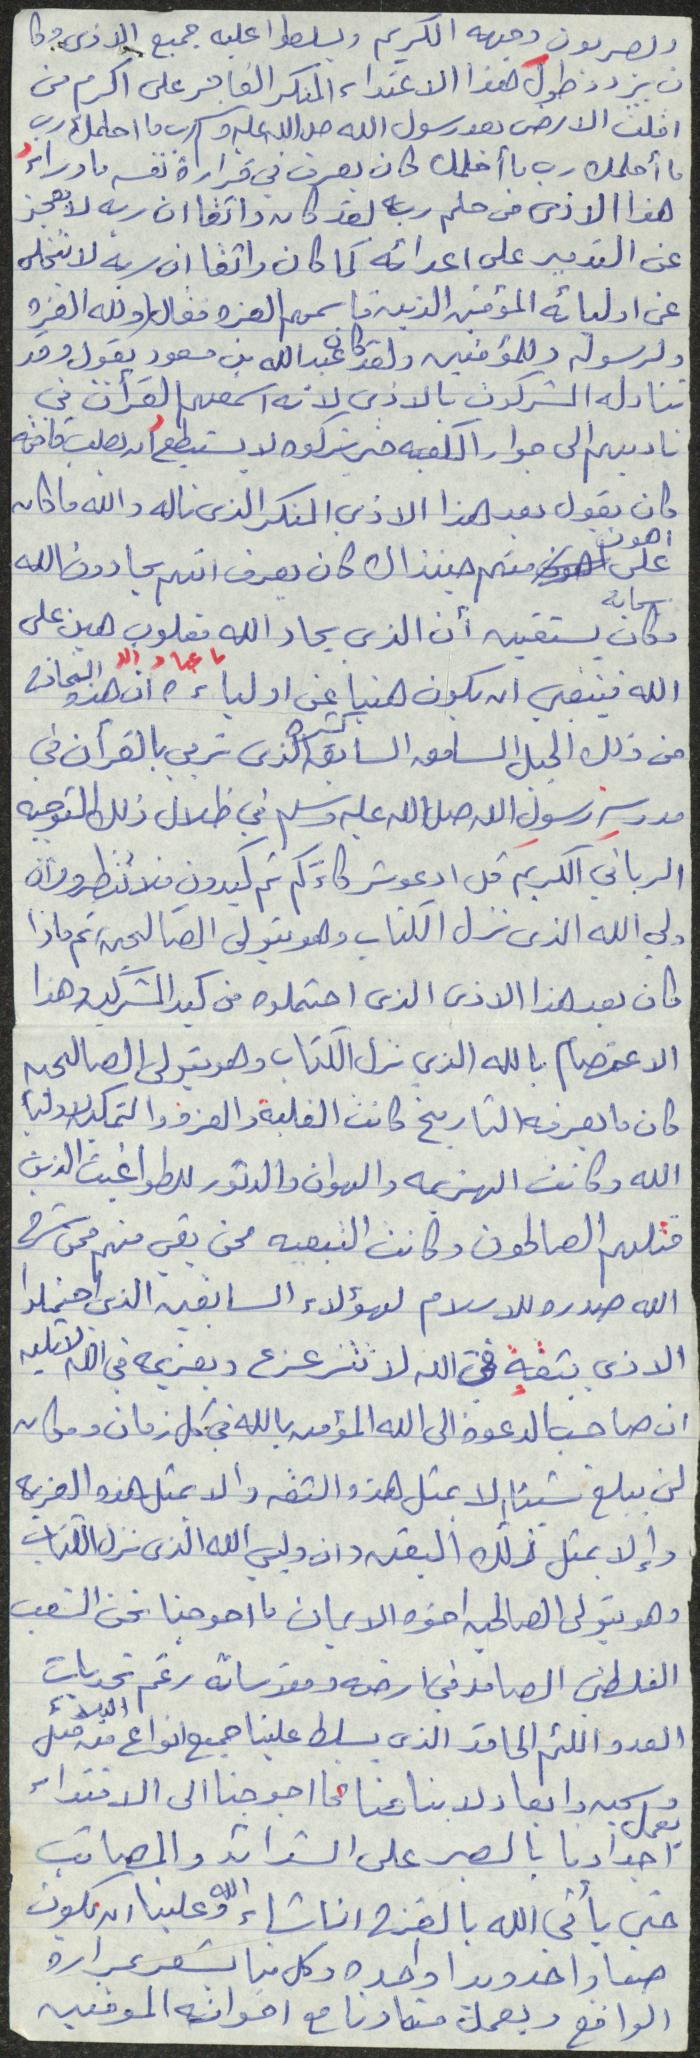 ويضربون وجهه الكريم ويسلطوا عليه جميع الاذى وكا
ن يردد طول هذا الاعتداء المنكر الفاجر على اكرم من
اقلت الارض بعد رسول الله صلى الله عليه وسلم رب ما احلمك رب
ما أحلمك رب ما أحلمك كان يعرف في قرارة نفسه ما وراء
هذا الاذى من حلم ربه لقد كان واثقا ان ربه لا يعجز
عن التدمير على اعدائه كما كان واثقا ان ربه لا يتخلى
عن اوليائه المؤمنين الذين قاسمهم العزه فقال (ولله العزه
ولرسوله وللمؤمنين ولقد كان عبدالله بن مسعود يقول وقد
تناوله المشركون بالاذى لانه اسمعهم القرآن في
ناديهم الى جوار الكعبه حتى تركوه لا يستطيع أن يصلب قامته
كان يقول بعد هذا الاذى المنكر الذي ناله والله ما كانو
اهون
على منهم حينئذاك كان يعرف انهم يحادون الله
سبحانه
وكان يستقين أن الذي يحاد الله مغلوب هين على
الله فينبغي ان يكون هنيا عن اولياءه ان هذه النماذج
يا عباد الله
من ذلك الجيل السامق السابقه كثيره الذي تربى بالقرآن في
مدرسة رسول الله صلى الله عليه وسلم في ظلال ذلك التوجيه
الرباني الكريم قل ادعو شركاءكم ثم كيدون فلا تنظرون ان
ولي الله الذي نزل الكتاب وهو يتولى الصالحين ثم ماذا
كان بعد هذا الاذى الذي احتملوه من كيد المشركين وهذا
الاعتصام بالله الذي نزل الكتاب وهو يتولى الصالحين
كان ما يعرفه التاريخ كانت الغلبة والعزه والتمكين لاوليا
الله وكانت الهزيمه والهوان والدثور للطواغيت الذين
قتلهم الصالحون وكانت التبعيه ممن بقي منهم ممن شرح
الله صدره للاسلام لهؤلاء السابقين الذي احتملوا
الاذى بثقة في الله لا تتزعزع وبعزيمه في الله لا تلين
ان صاحب الدعوة الى الله المؤمن بالله في كل زمان ومكان
لن يبلغ شيئا إلا بمثل هذه الثقه وألا بمثل هذه العزيمه
وإلا بمثل ذلك اليقين وان وليي الله الذي نزل الكتاب
وهو يتولى الصالحين اخوه الايمان ما احوجنا نحن الشعب
الفلسطيني الصامد في ارضه ومقدساته رغم تحديات
العدو اللئيم الحاقد الذي يسلط علينا جميع انواع البلاء من قتل
وسجن وابعاد لابنائنا فما احوجنا الى الاقتداء
بعمل
اجدادنا بالصبر على الشدائد والمصائب
حتى يأتي الله بالفرج انشاء الله وعلينا ان نكون
صفا واحد ويدا واحده وكل منا يشعر بمراره
الواقع ويعمل متعاونا مع اخوانه المؤمنين